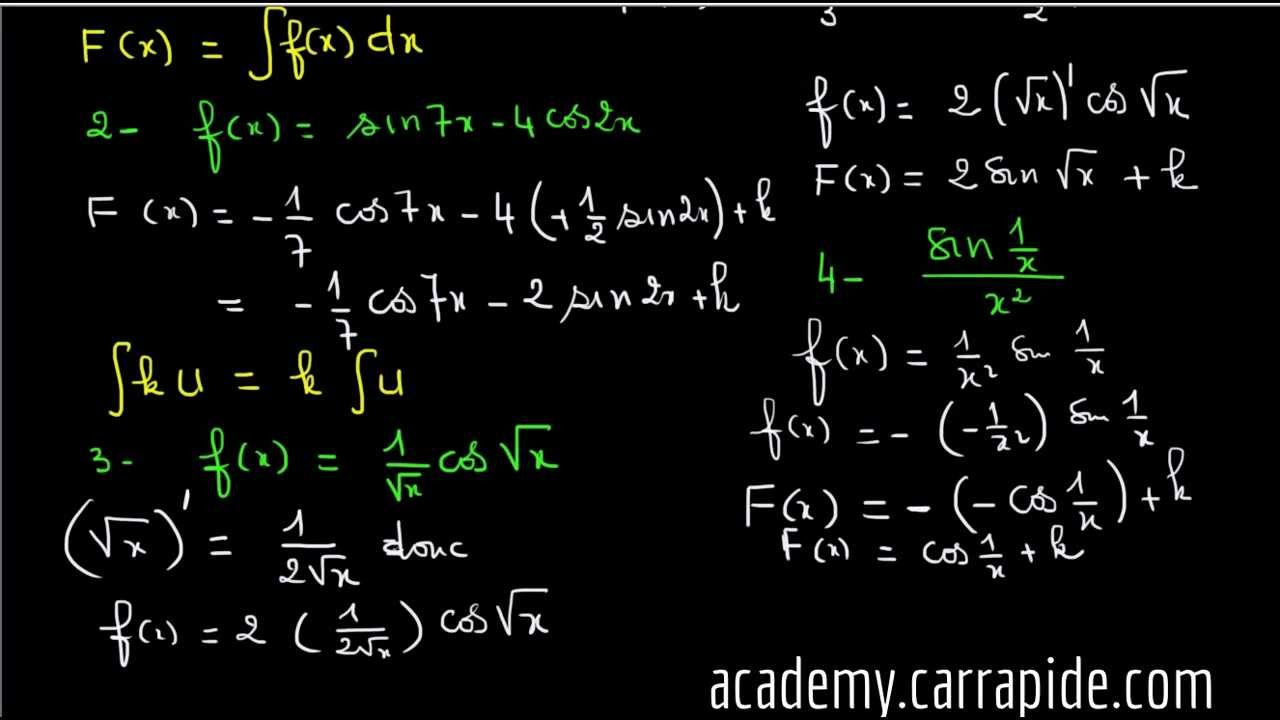 F(x) = ∫f(x) dx
2- f(x) = sin7x - 4 cos2x
F(x) = - 1/7 cos7x - 4(+ 1/2 sin2x) + k
= - 1/7 cos7x - 2 sin2x + k
∫k u = k ∫u
3- f(x) = 1/√x cos √x
(√x)' = 1/2√x donc
f(x) = 2 (1/2√x) cos √x
3 2
f(x) = 2 (√x)' cos √x
F(x) = 2 sin √x + k
4- sin 1/x / x²
f(x) = 1/x² sin 1/x
f(x) = - (-1/x²) sin 1/x
F(x) = - (- cos 1/x) + k
F(x) = cos 1/x + k
academy.carrapide.com